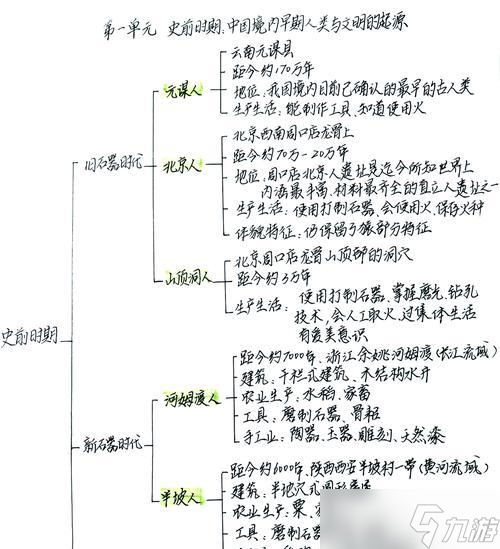 第一单元 史前时期:中国境内早期人类与文明的起源
史前时期
旧石器时代
元谋人
云南元谋县
距今约170万年
地位:我国境内目前已确认的最早的古人类
生产生活:能制作工具、知道使用火
北京人
北京西南周口店龙骨山
距今约70万-20万年
地位:周口店北京人遗址是迄今所知世界上
内涵最丰富、材料最齐全的直立人遗址之一
生产生活:使用打制石器、会使用火、保存火种
体貌特征:仍保留了猿部分特征
山顶洞人
北京周口店龙骨山顶部的洞穴
距今约3万年
生产生活:使用打制石器、掌握磨光、钻孔
技术、会人工取火、过集体生活
有爱美意识
新石器时代
河姆渡人
距今约7000年、浙江余姚河姆渡(长江流域)
建筑:干栏式建筑、木结构水井
农业生产:水稻、家畜
工具:磨制石器、骨耜
手工业:陶器、玉器、雕刻、天然漆
半坡人
距今约6000年、陕西西安半坡村一带(黄河流域)
建筑:半地穴式圆形房屋
农业生产:粟、家
工具:磨制石器
九游